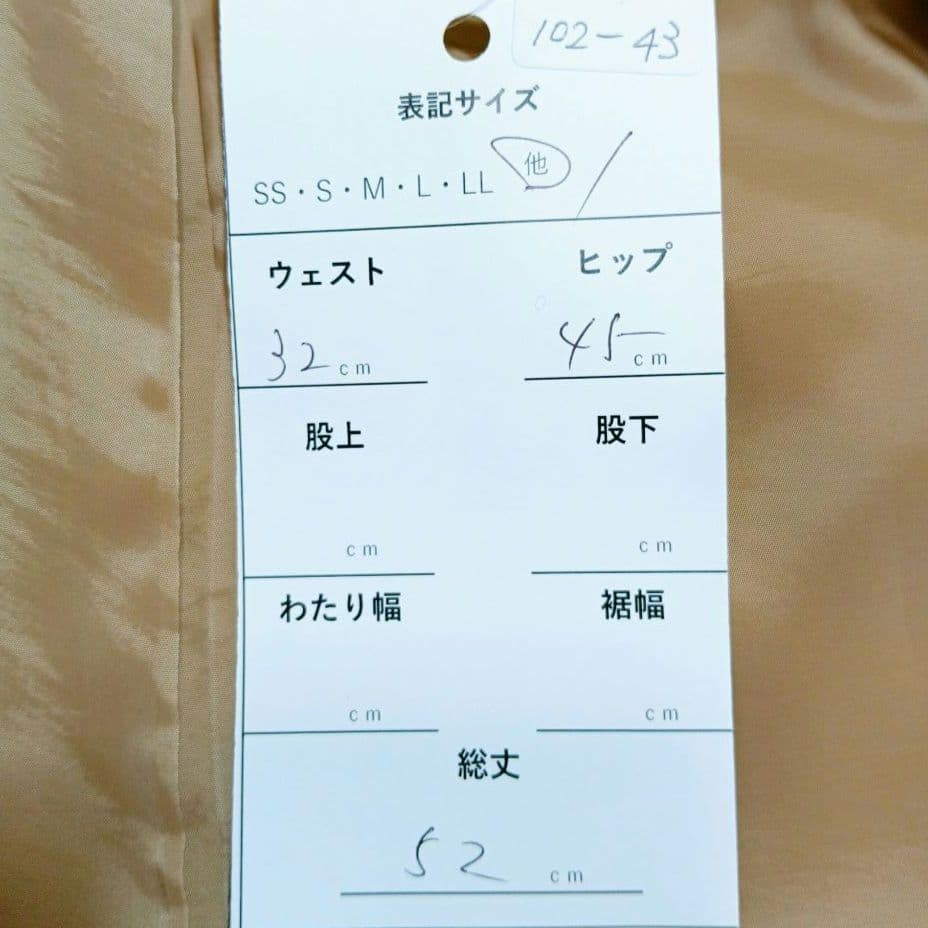 102-43
表記サイズ
SS・S・M・L・LL 他 /
ウェスト ヒップ
32cm 45cm
股上 股下
cm cm
わたり幅 裾幅
cm cm
総丈
52 cm